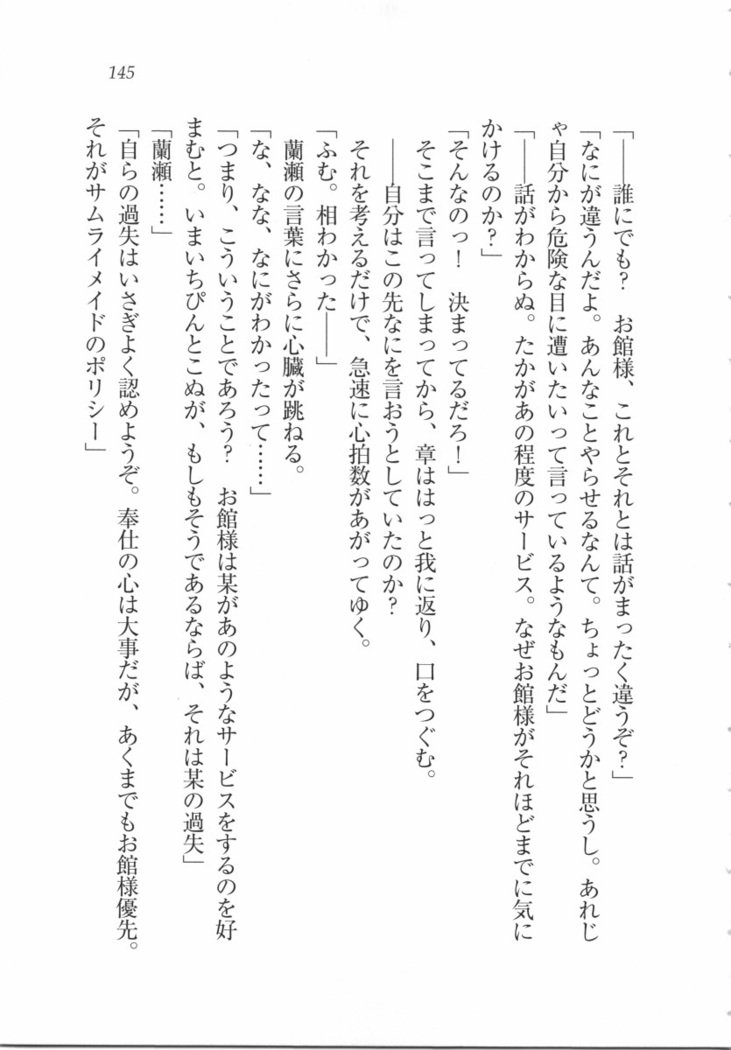 145
「――誰にでも?　お館様、これとそれとは話がまったく違うぞ?」
「なにが違うんだよ。あんなことやらせるなんて。ちょっとどうかと思うし。あれじ
ゃ自分から危険な目に遭いたいって言っているようなもんだ」
「――話がわからぬ。たかがあの程度のサービス。なぜお館様がそれほどまでに気に
かけるのか?」
「そんなのっ!　決まってるだろ!」
そこまで言ってしまってから、章ははっと我に返り、口をつぐむ。
――自分はこの先なにを言おうとしていたのか?
それを考えるだけで、急速に心拍数があがってゆく。
「ふむ。相わかった――」
蘭瀬の言葉にさらに心臓が跳ねる。
「な、なな、なにがわかったって……」
「つまり、こういうことであろう?　お館様は某があのようなサービスをするのを好
まむと。いまいちぴんとこぬが、もしもそうであるならば、それは某の過失」
「蘭瀬……」
「自らの過失はいさぎよく認めようぞ。奉仕の心は大事だが、あくまでもお館様優先。
それがサムライメイドのポリシー」